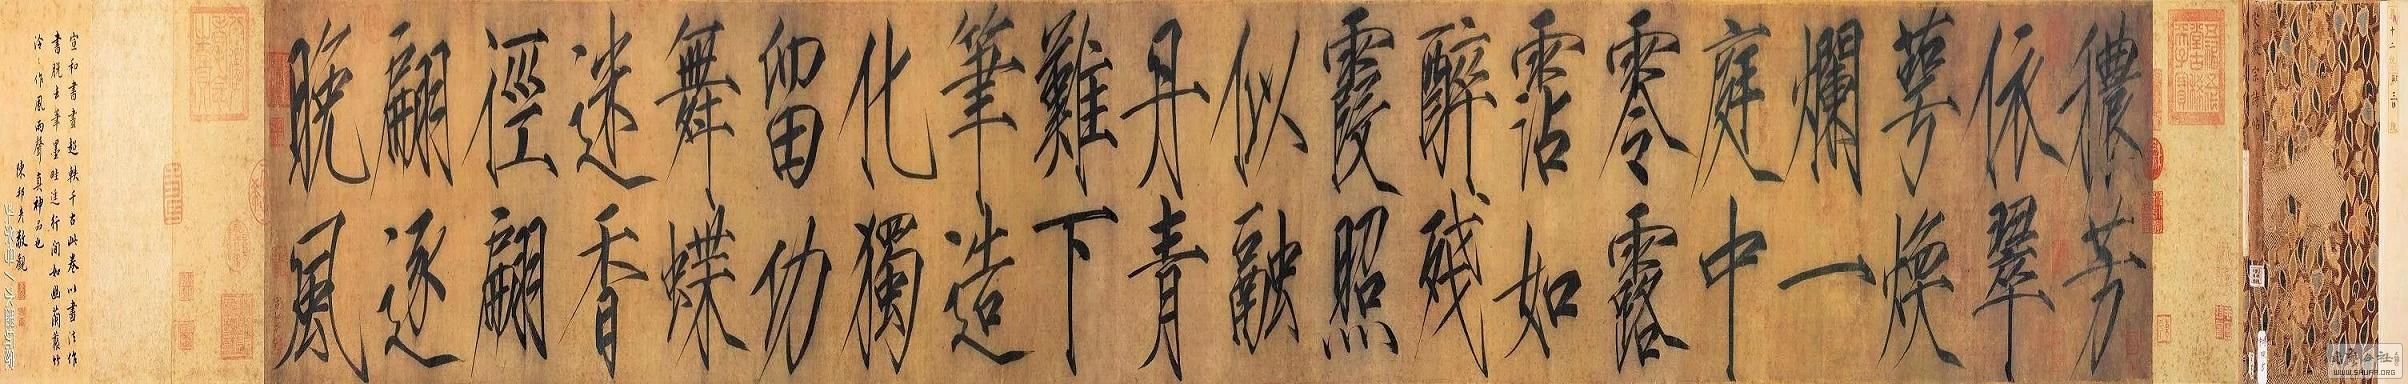 穠芳
依翠
萼煥
爛一
庭中
零露
霑如
醉殘
霞照
似融
丹青
難下
筆造
化獨
留功
舞蝶
迷香
徑翩
翩逐
晚風
宣和書畫超軼千古此卷以書法作
畫脫去筆墨畦逕行間如幽蘭叢竹
泠泠作風雨聲真神品也
陳邦彥敬觀
WWW.SHUFA.ORG